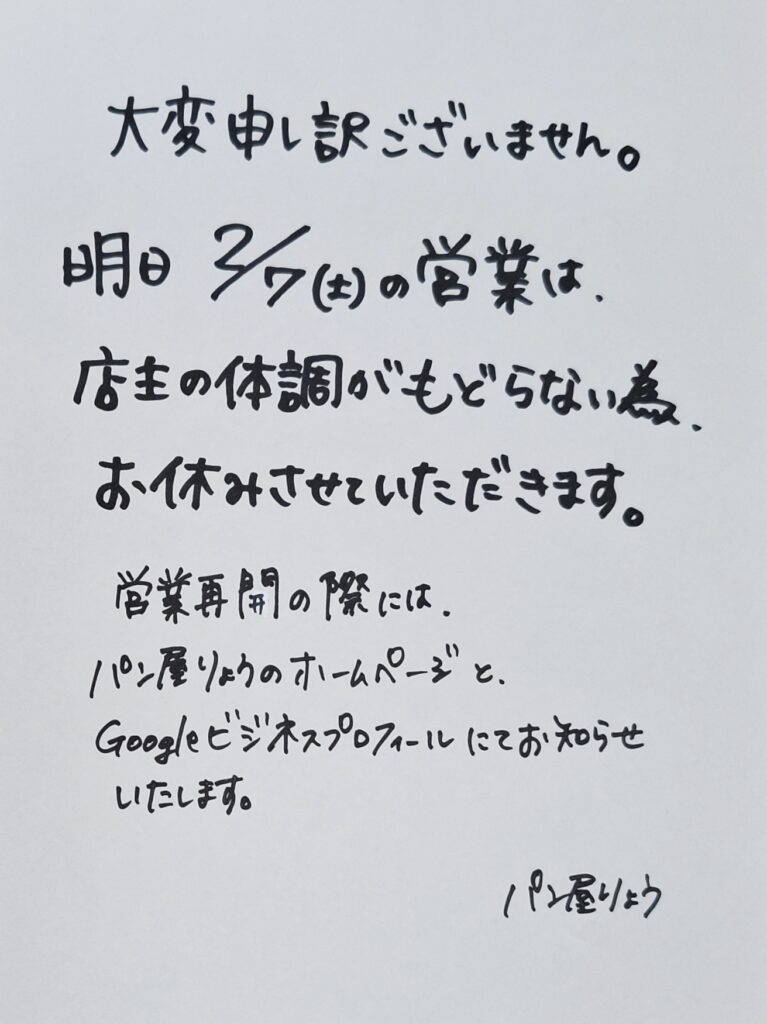 大変申し訳ございません。
明日 2/7(土)の営業は、
店主の体調がもどらない為、
お休みさせていただきます。
営業再開の際には、
パン屋りょうのホームページと、
Googleビジネスプロフィールにてお知らせ
いたします。
パン屋りょう